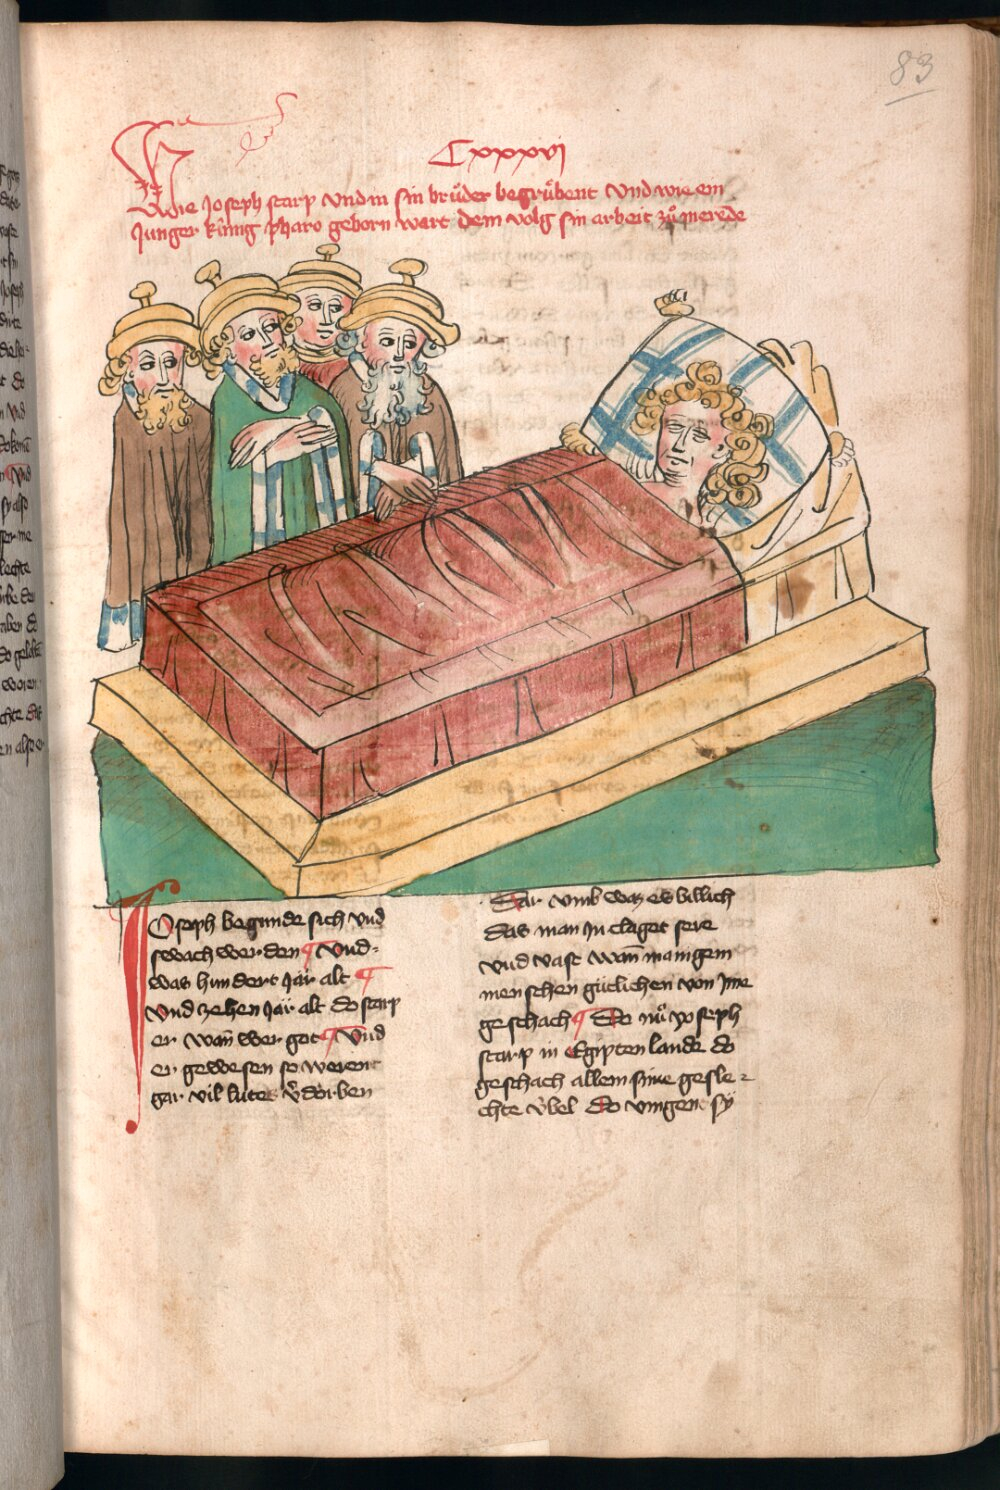 83
Cxxxvi
Wie Joseph starp vnd in sin brůder begrůbent vnd wie ein
Junger kúnig pharo geborn wart dem volg sin arbeit zů merēde
Joseph begunde sich vnd
swach werden ¶ Vnd
was hundert jar alt ¶
Vnd zehen jar alt do starp
er wañ wer got ¶ Vnd
er gewesen so werent
gar vil lútes v̓dorben
Dar vmb waz es billich
das man jn claget sere
vnd vast wañ manigem
menschen gútlichen von jme
geschach ¶ Do nů yoseph
starp in Egipten lande do
geschach allem sime gesle-
chte v́bel do vingen sý